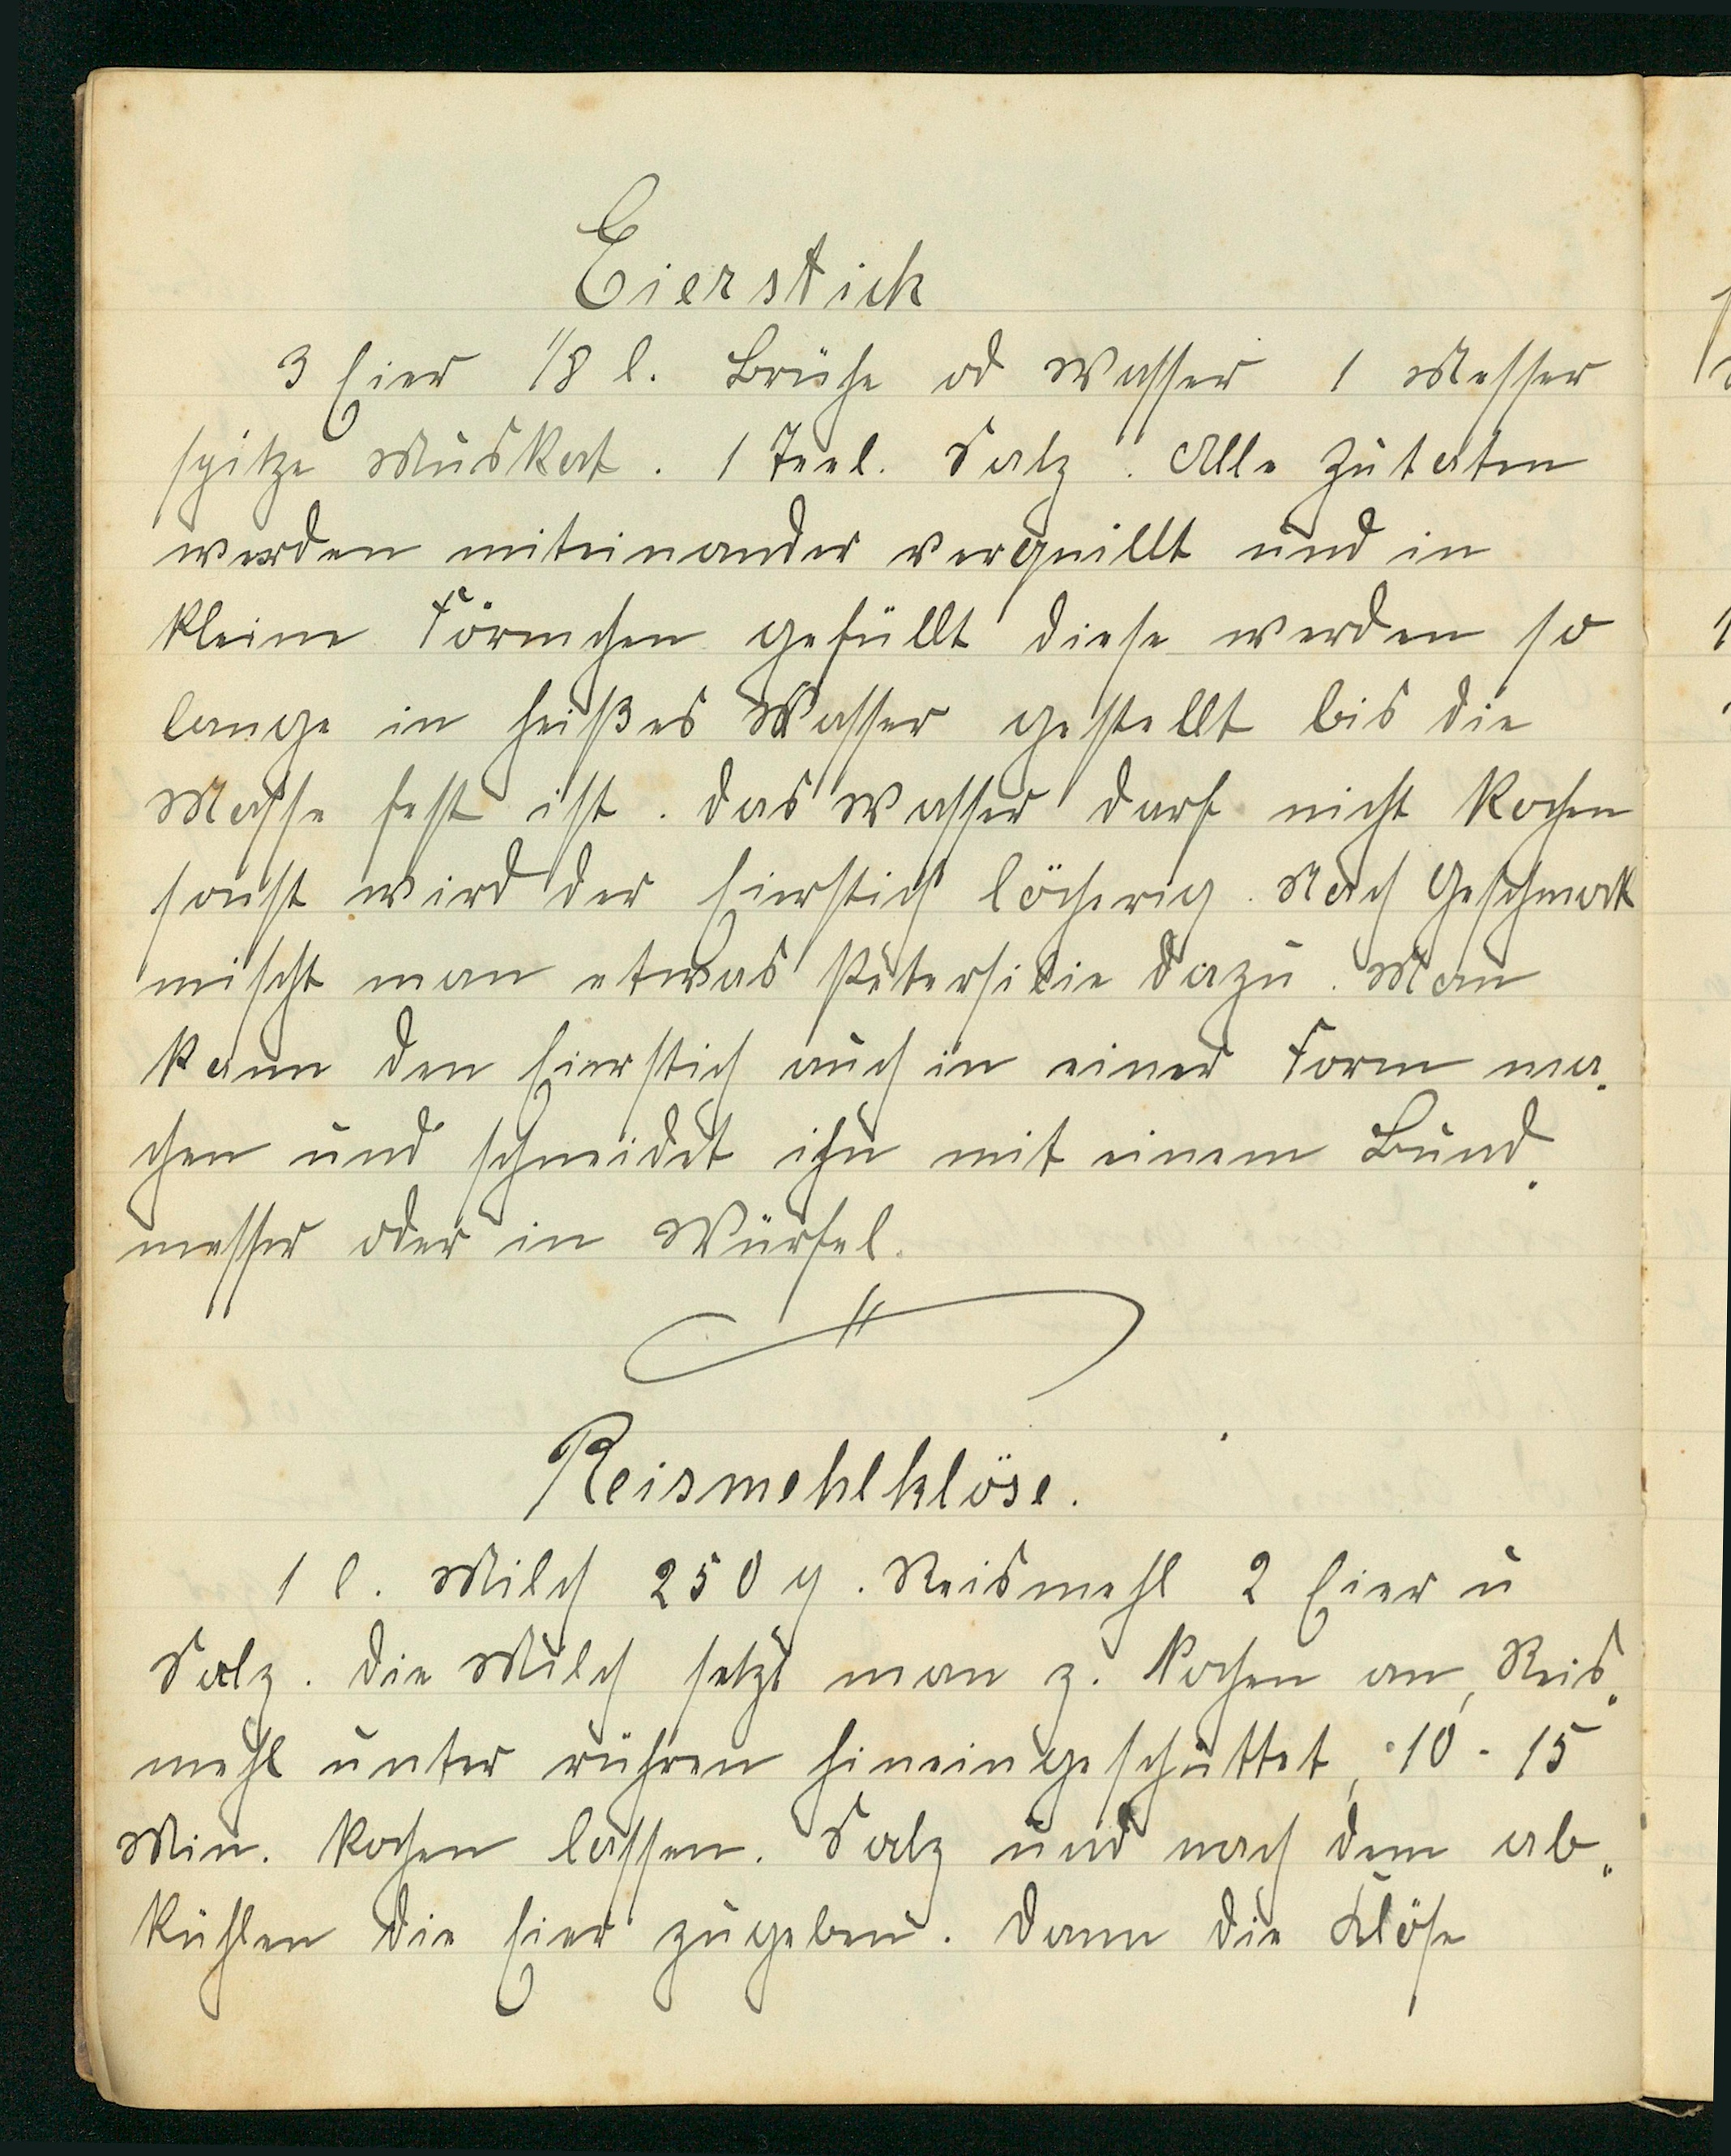 Eierstich
3 Eier 1/8 l. Brühe od Wasser 1 Messer
spitze Muskat. 1 Teel. Salz. Alle Zutaten
werden miteinander verquillt und in
kleine Förmchen gefüllt diese werden so
lange in heißes Wasser gestellt bis die
Masse fest ist. das Wasser darf nicht kochen
sonst wird der Eierstich löcherig. Nach Geschmack
mischt man etwas Petersilie dazu. Man
kann den Eierstich auch in einer Form ma-
chen und schneidet ihn mit einem Bund-
messer oder in Würfel.
Reismehlklöse.
1 l. Milch 250 g. Reismehl 2 Eier u
Salz. die Milch setzt man z. Kochen an, Reis-
mehl unter rühren hineingeschüttet, 10 - 15
Min. kochen lassen. Salz und nach dem ab-
kühlen die Eier zugeben. dann die Klöse